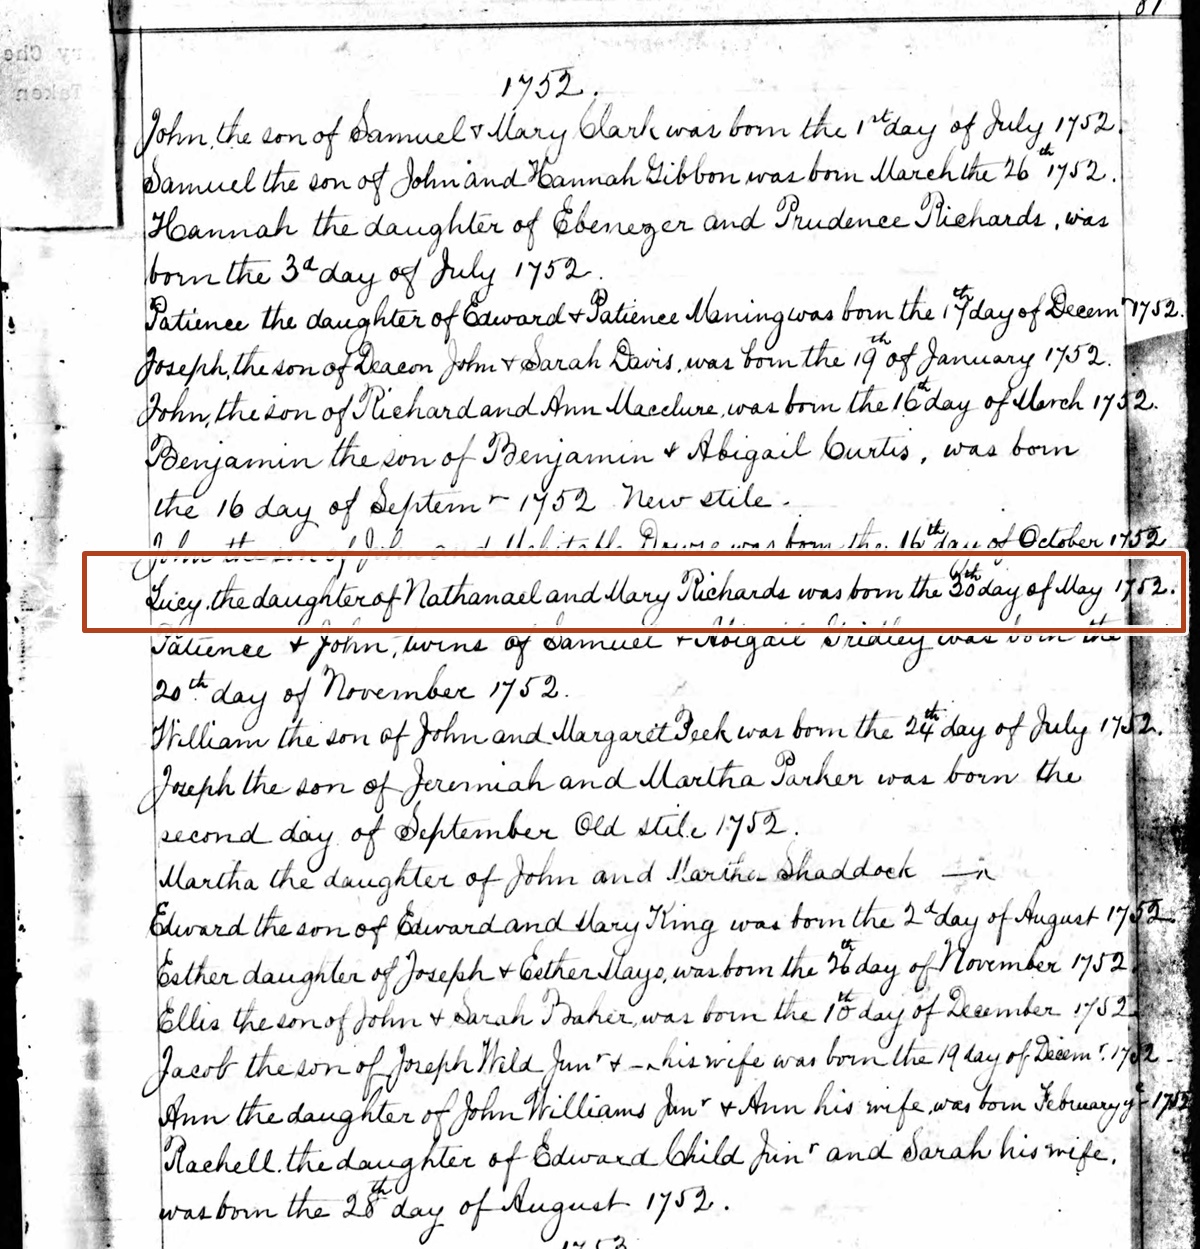 81
1752.
John, the son of Samuel & Mary Clark was born the 1st day of July 1752.
Samuel the son of John and Hannah Gibbon was born March the 26th 1752.
Hannah the daughter of Ebenezer and Prudence Richards, was
born the 3d day of July 1752.
Patience the daughter of Edward & Patience Maning was born the 17th day of Decemr 1752.
Joseph, the son of Deacon John & Sarah Davis, was born the 19th of January 1752.
John, the son of Richard and Ann Macclure, was born the 16th day of March 1752.
Benjamin the son of Benjamin & Abigail Curtis, was born
the 16 day of Septemr 1752 New stile.
John the son of John and Mehitable was born the 16th day of October 1752
Lucy, the daughter of Nathanael and Mary Richards was born the 30th day of May 1752.
Patience & John, twins of Samuel & Abigail Gridley was born the
20th day of November 1752.
William the son of John and Margaret Peek was born the 24th day of July 1752.
Joseph the son of Jeremiah and Martha Parker was born the
second day of September Old stile 1752.
Martha the daughter of John and Martha Shaddock
Edward the son of Edward and Mary King was born the 2d day of August 1752
Esther daughter of Joseph & Esther Mayo, was born the 26th day of November 1752
Ellis the son of John & Sarah Baker, was born the 10th day of December 1752
Jacob the son of Joseph Weld Junr & - his wife was born the 19 day of Decemr. 1752
Ann the daughter of John Williams Junr & Ann his wife, was born February ye - 1752
Rachell, the daughter of Edward Child Junr and Sarah his wife,
was born the 28th day of August 1752.
1753